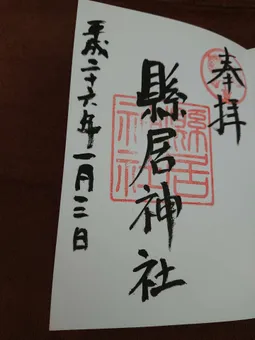 奉拝
縣居神社
平成二十六年一月三日